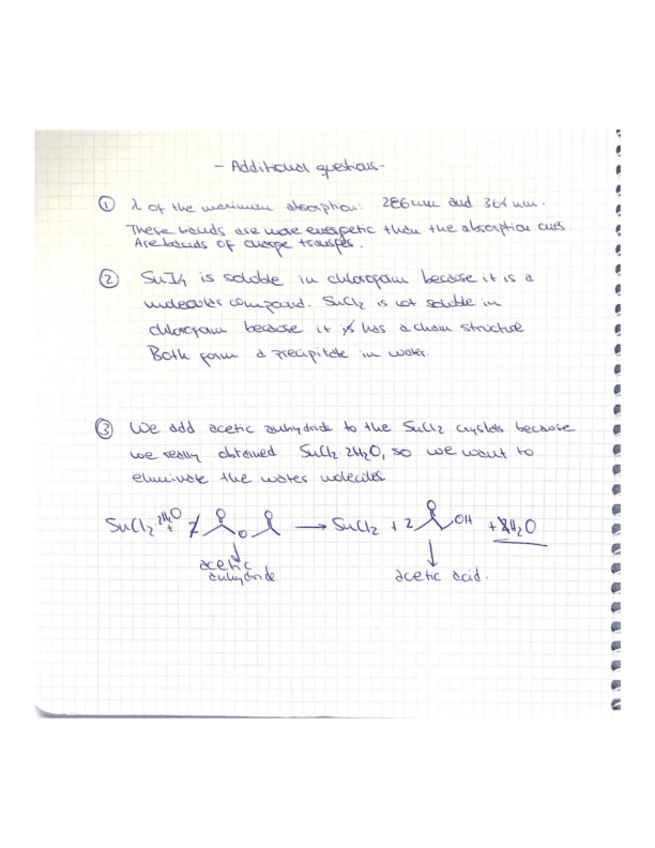 - Additional questions -
① λ of the maximum absorption: 286 nm and 364 nm.
These bands are more energetic than the absorption ones.
Are bands of charge transfer.
② SnI4 is soluble in chloroform because it is a
molecular compound. SnCl2 is not soluble in
chloroform because it has a chain structure
Both form a precipitate in water.
③ We add acetic anhydride to the SnCl2 crystals because
we really obtained SnCl2·2H2O, so we want to
eliminate the water molecules
SnCl2·2H2O + O O O → SnCl2 + 2 O OH + H2O
acetic anhydride acetic acid.